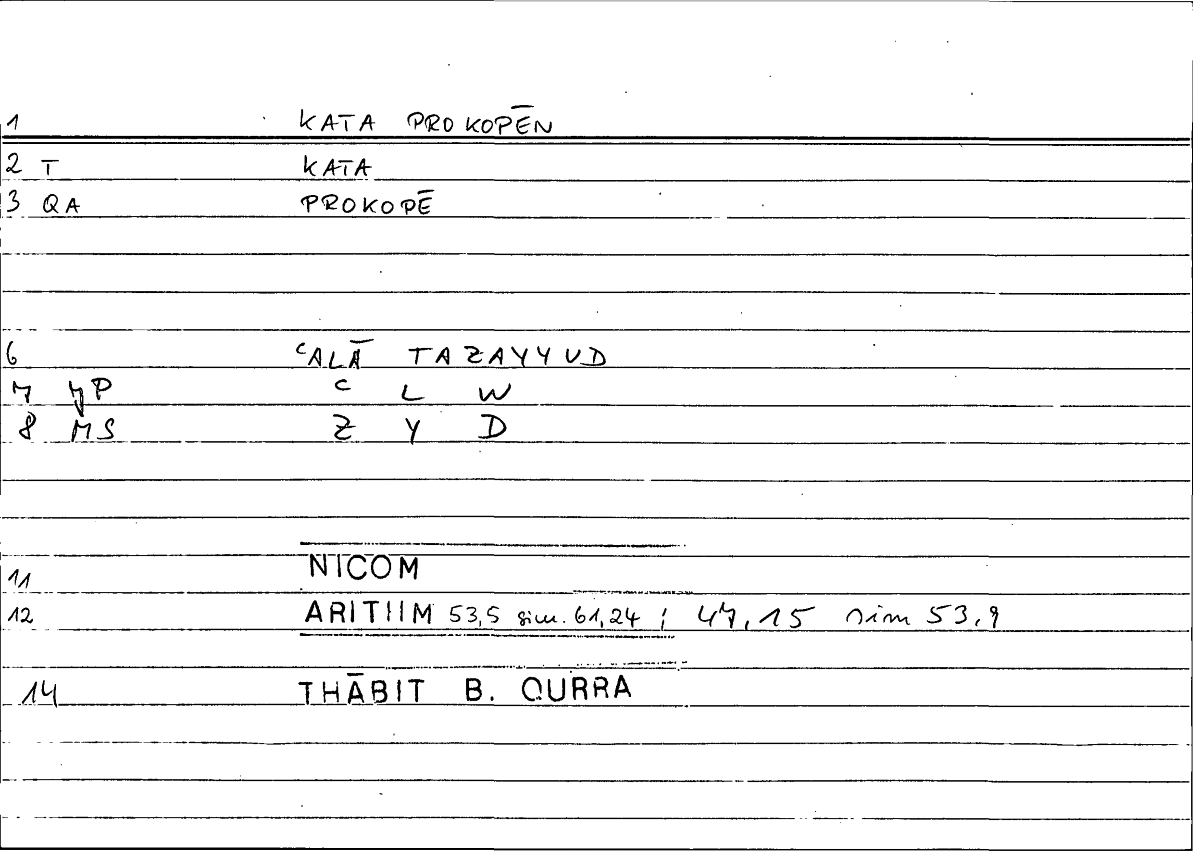 1 KATA PROKOPĒN
2 T KATA
3 QA PROKOPĒ
6 ᶜALĀ TAZAYYUD
7 JP ᶜ L W
8 MS Z Y D
11 NICOM
12 ARITIIM 53,5 sim. 61,24 ; 47,15 sim 53,9
14 THĀBIT B. QURRA